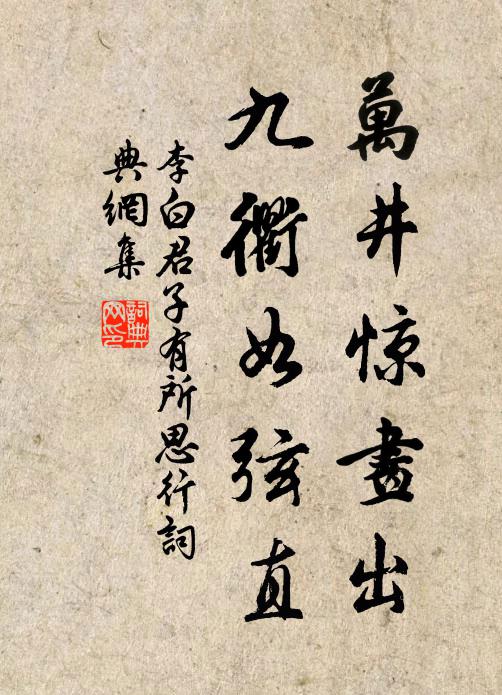 萬井惊畫出
九衢如弦直
李白君子有所思行詞
典網集
詞典网印